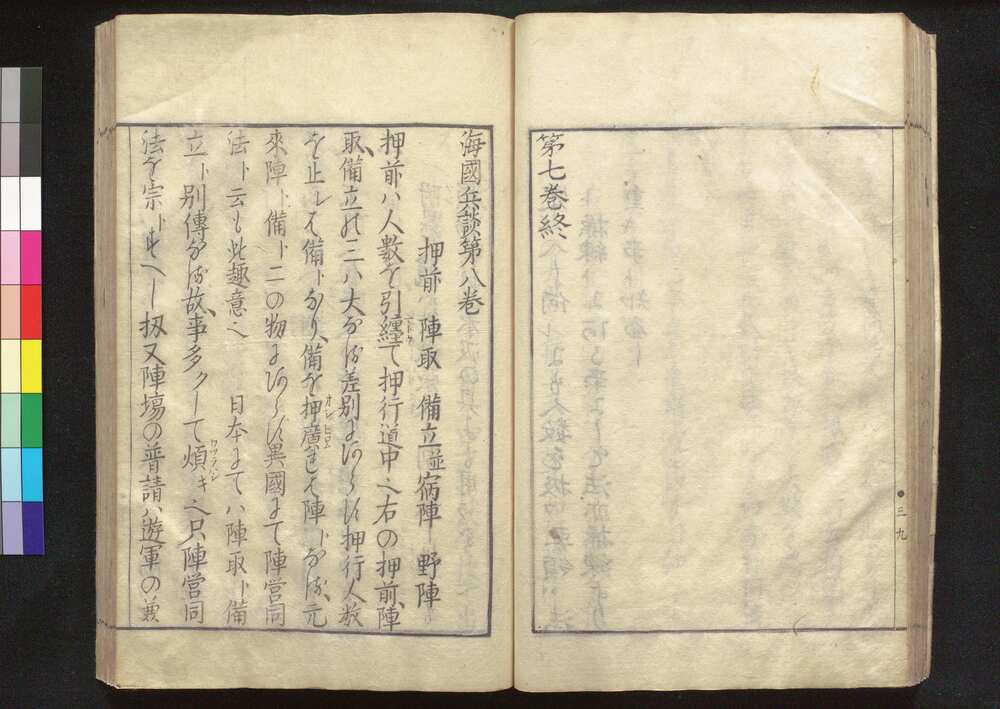 第七巻終
三九
海國兵談第八巻
押前 陣取 備立並宿陣 野陣
押前ハ人数を引纏て押行道中之右の押前陣
取備立の三ハ大なる差別にあらす押行人数
を止レは備トなり備を押廣れは陣トなる元
来陣ト備ト二の物にあらす異國にて陣営同
法ト云も此趣意也 日本にてハ陣取ト備
立ト別傳なる故事多クして煩キ也只陣営同
法を宗トすへし扨又陣場の普請ハ遊軍の兼